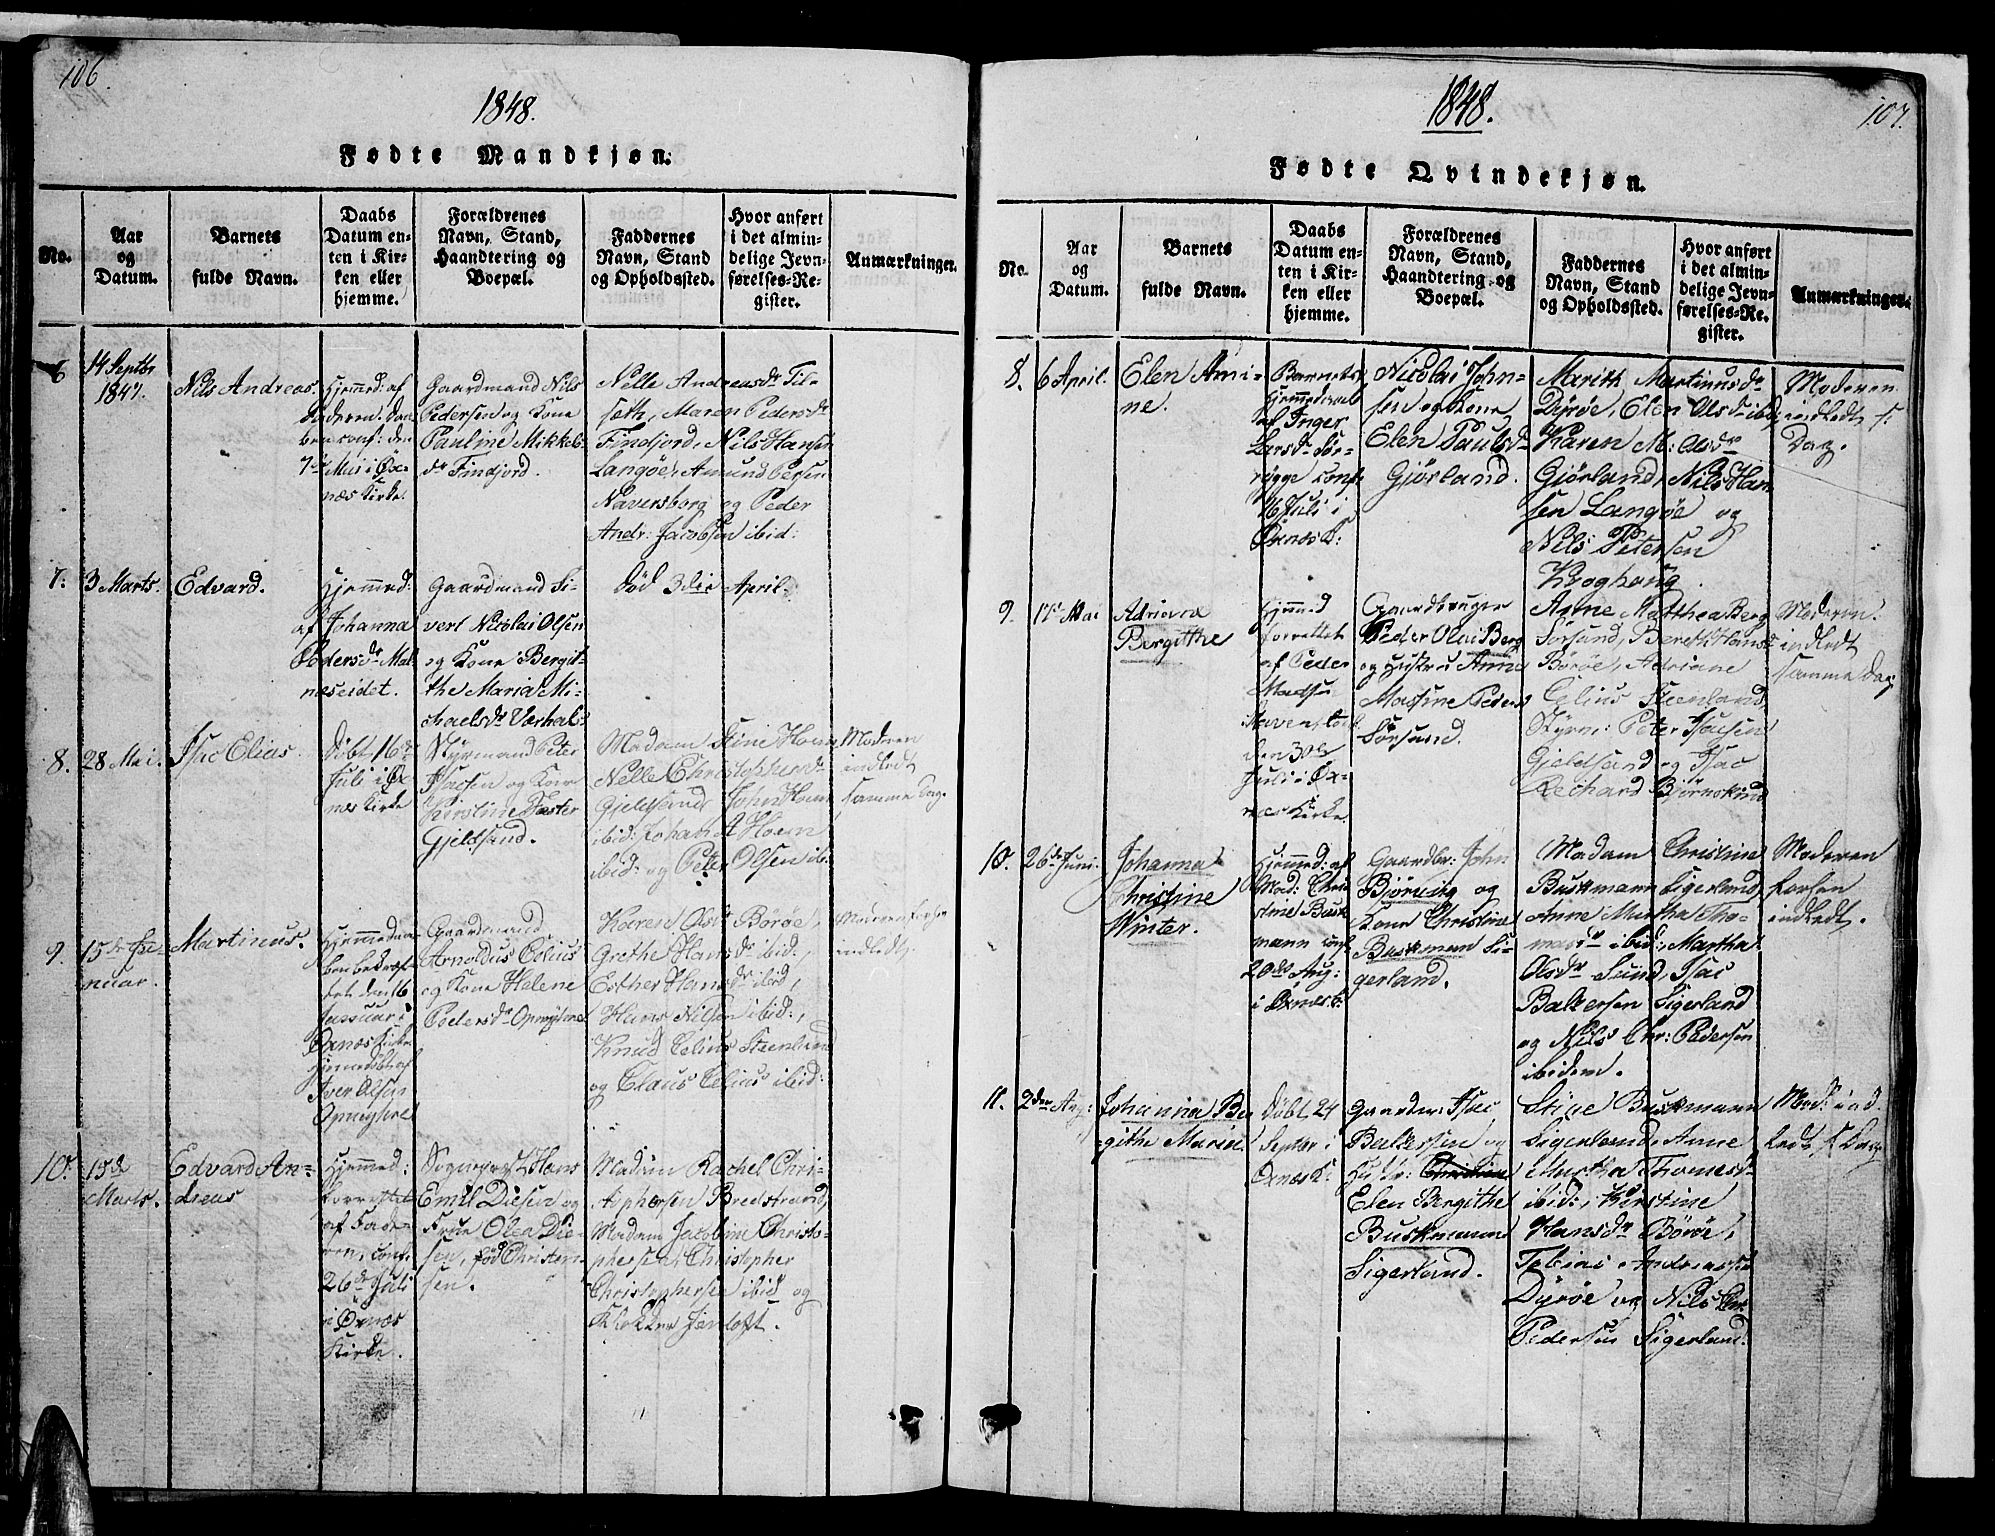 106.
1848.
Fødte Mandkjøn.
No.
Aar
og
Datum.
Barnets
fulde Navn.
Daabs
Datum en-
ten i Kir-
ken eller
hjemme.
Forældrenes
Navn, Stand,
Haandtering og
Boepæl.
Faddernes
Navn, Stand
og Opholdssted.
Hvor anført
i det almin-
delige Jevn-
førelses-Re-
gister.
Anmærkninger.
6
14 Septbr
1847.
Nils Andreas.
Hjemmed: af
Faderen. Daa-
ben conf: den
7de Mai i Øx-
næs Kirke.
Gaardmand Nils
Pedersen og Kone
Pauline Mikkels-
dr Findjord.
Nelle Andreasdr Til-
seth, Maren Pedersdr
Findjord, Nils Hansen
Langøe, Amund Persen
Naversborg og Peder
Andr: Jacobsen ibid:
7.
3 Marts.
Edvard.
Hjemmed:
af Johanna
Pedersdr Mel-
næseidet.
Gaardmand Si-
vert Nicolai Olsen
og Kone Bergit-
the Maria Mi-
chaelsdr Værhals
død 3die April.
8.
28 Mai.
Isac Elias.
Døbt 16de
Juli i Øx-
næs Kirke
Styrmand Peter
Isacsen og Kone
Kirstine Hveder
Gjeldsand.
Madam Stine Hoem
Nelle Christophersdr
Gjeldsand, John Hoem
ibid: Johan A Hoem
ibid: og Peter Olsen ib:
Moderen
indledt
samme Dag.
9.
15de Ja-
nuar.
Martinus.
Hjemmedaa-
ben bekræf-
tet den 16
Januar i
Øxnæs Kirke
hjemmedøbt af
Iver Olsen
Opmyhre
Gaardmand
Arnoldus Colius
og Kone Helene
Pedersdr Opmyhre
Karen Olsdr Børøe,
Grethe Hansdr ibid.,
Esther Hansdr ibid,
Hans Nilsen ibid:,
Knud Celius Steenland
og Claus Celius ibid:
Moderen forhen
indledt
10.
15de
Marts.
Edvard An-
dreas
Hjemmed:
forrettet
af Fade-
ren, conf.
26de Juli
i Øxnæs
Kirke.
Sognepræst Hans
Emil Diesen og
Frue Olea Die-
sen, fød Christen-
sen.
Madam Rachel Chri-
stophersen Bredstrand,
Madam Jacobine Christo-
phersen, Christopher
Christophersen ibid og
Klokker Jentoft.
107.
1848.
Fødte Qvindekjøn.
No.
Aar
og
Datum.
Barnets
fulde Navn.
Daabs
Datum en-
ten i Kir-
ken eller
hjemme.
Forældrenes
Navn, Stand,
Haandtering og
Boepæl.
Faddernes
Navn, Stand
og Opholdssted.
Hvor anført
i det almin-
delige Jevn-
førelses-Re-
gister.
Anmærkninger.
8.
6 April.
Elen Ami-
ne.
Barnets
hjemmedaab
af Inger
Larsdr Sør-
rygge conf.
16 Juli i
Øxnæs K:
Nicolai John-
sen og Kone
Elen Paulsdr
Gjørland.
Marith Martinusdr
Dyrøe, Elen Olsdr ibid,
Karen M: Olsdr
Gjørland, Nils Han-
sen Langøe og
Nils Petersen
Kroghøug.
Moderen
indledt s:
Dag.
9.
17 Mai
Adriana
Bergitthe
Hjemmed
forrettet
af Peder
den 30te
Juli i Øx-
næs Kirke.
Gaardbruger
Peder Olai Berg
og Hustru Anne
Martine Peders
Sørsund.
Anne Matthea Berg
Sørsund, Bereth Hansdr
Børøe, Adriane
Celius Steenland,
Styrm: Peter Isacsen
Gjeldsand og Isac
Rechard Bjørnskind
Moderen
indledt
samme Dag
10.
26de Juni.
Johanna
Christine
Winter.
Hjemmed: af
Mad: Chri-
stine Busk-
mann conf
20de Aug:
i Øxnæs K:
Gaardbr: John
Bjørvig og
Kone Christine
Buskman Si-
gerland.
Madam Christine
Buskmann Sigerland,
Anne Martha Tho-
masdr ibid:, Martha
Olsdr Sund, Isac
Baltersen Sigerland
og Nils Chr: Pedersen
ibidem.
Moderen
forhen
indledt.
11.
2den Aug:
Johanna Ber-
githe Marie
Døbt 24
Septbr i
Øxnæs K:
Gaardm: Isac
Baltersen og
Hustr: Christine
Elen Bergithe
Buskmann
Sigerland.
Stine Buskmann
Sigerland, Anne
Martha Thomasdr
ibid:, Kirstine
Hansdr Børøe,
Tobias Andreassen
Dyrøe og Nils Chr
Pedersen Sigerland.
Mod: ind-
ledt s Dag